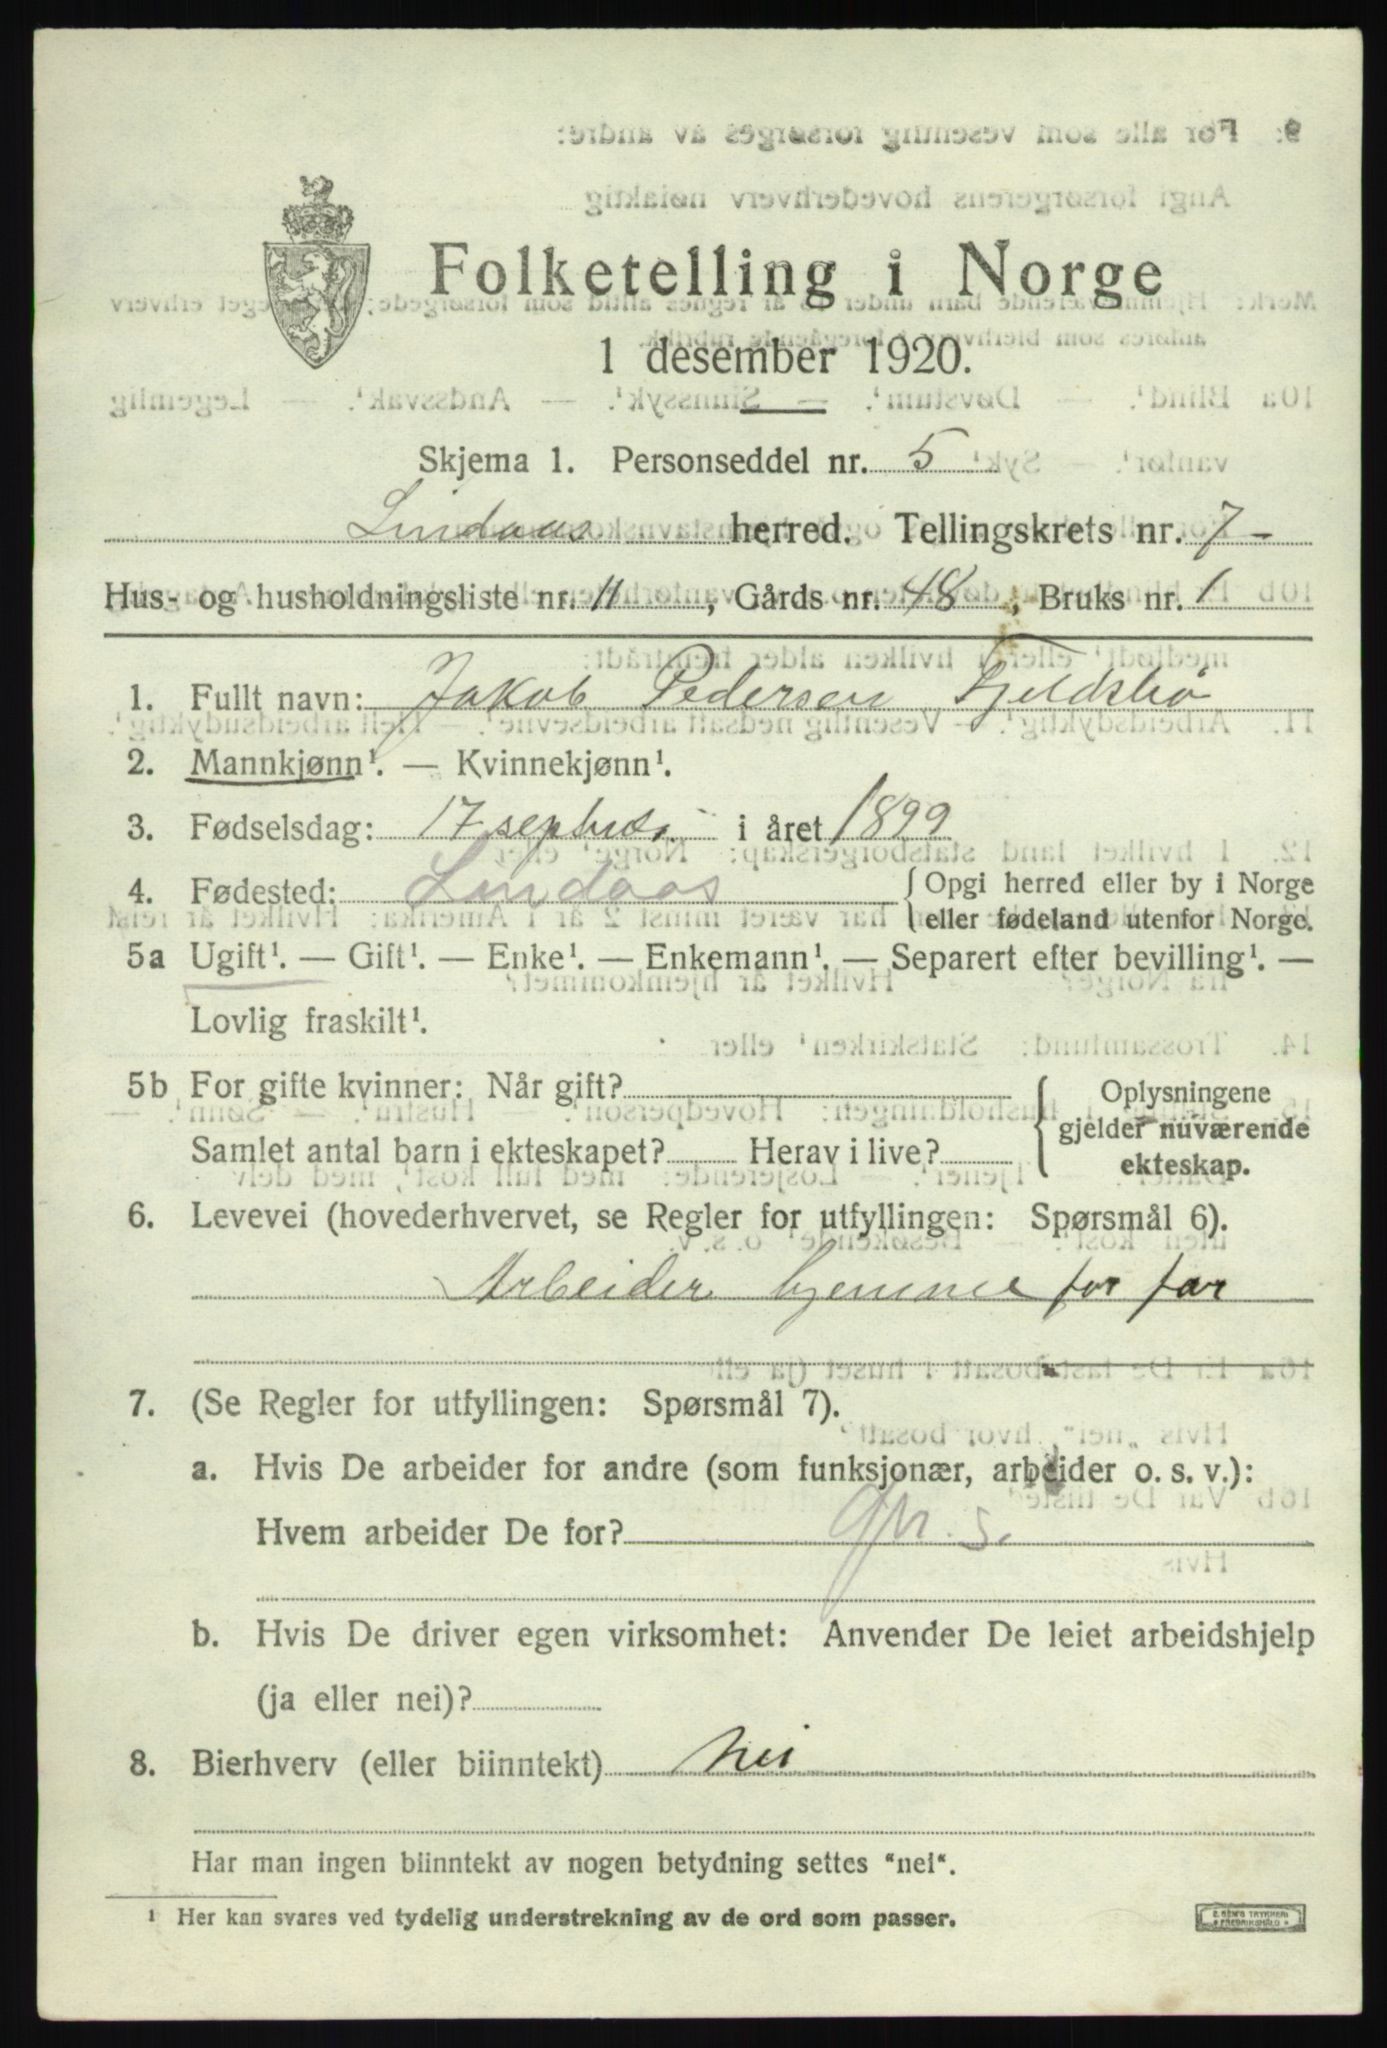 Folketelling i Norge
1 desember 1920.
Skjema 1. Personseddel nr. 5
Lindaas herred. Tellingskrets nr. 7-
Hus- og husholdningsliste nr. 11, Gårds nr. 48, Bruks nr. 1
1. Fullt navn: Jakob Pedersen Fjeldsbö
2. Mannkjønn¹. — Kvinnekjønn¹.
3. Fødselsdag: 17 i året 1899
4. Fødested: Lindaas { Opgi herred eller by i Norge
eller fødeland utenfor Norge.
5a Ugift¹. — Gift¹. — Enke¹. — Enkemann¹. — Separert efter bevilling¹. —
Lovlig fraskilt¹.
5b For gifte kvinner: Når gift? { Oplysningene
gjelder nuværende
Samlet antal barn i ekteskapet? Herav i live?
ekteskap.
6. Levevei (hovederhvervet, se Regler for utfyllingen: Spørsmål 6).
Arbeider hjemme for far
7. (Se Regler for utfyllingen: Spørsmål 7).
a. Hvis De arbeider for andre (som funksjonær, arbeider o. s. v.):
Hvem arbeider De for?
b. Hvis De driver egen virksomhet: Anvender De leiet arbeidshjelp
(ja eller nei)?
8. Bierhverv (eller biinntekt) Nei
Har man ingen biinntekt av nogen betydning settes “nei“.
¹ Her kan svares ved tydelig understrekning av de ord som passer.